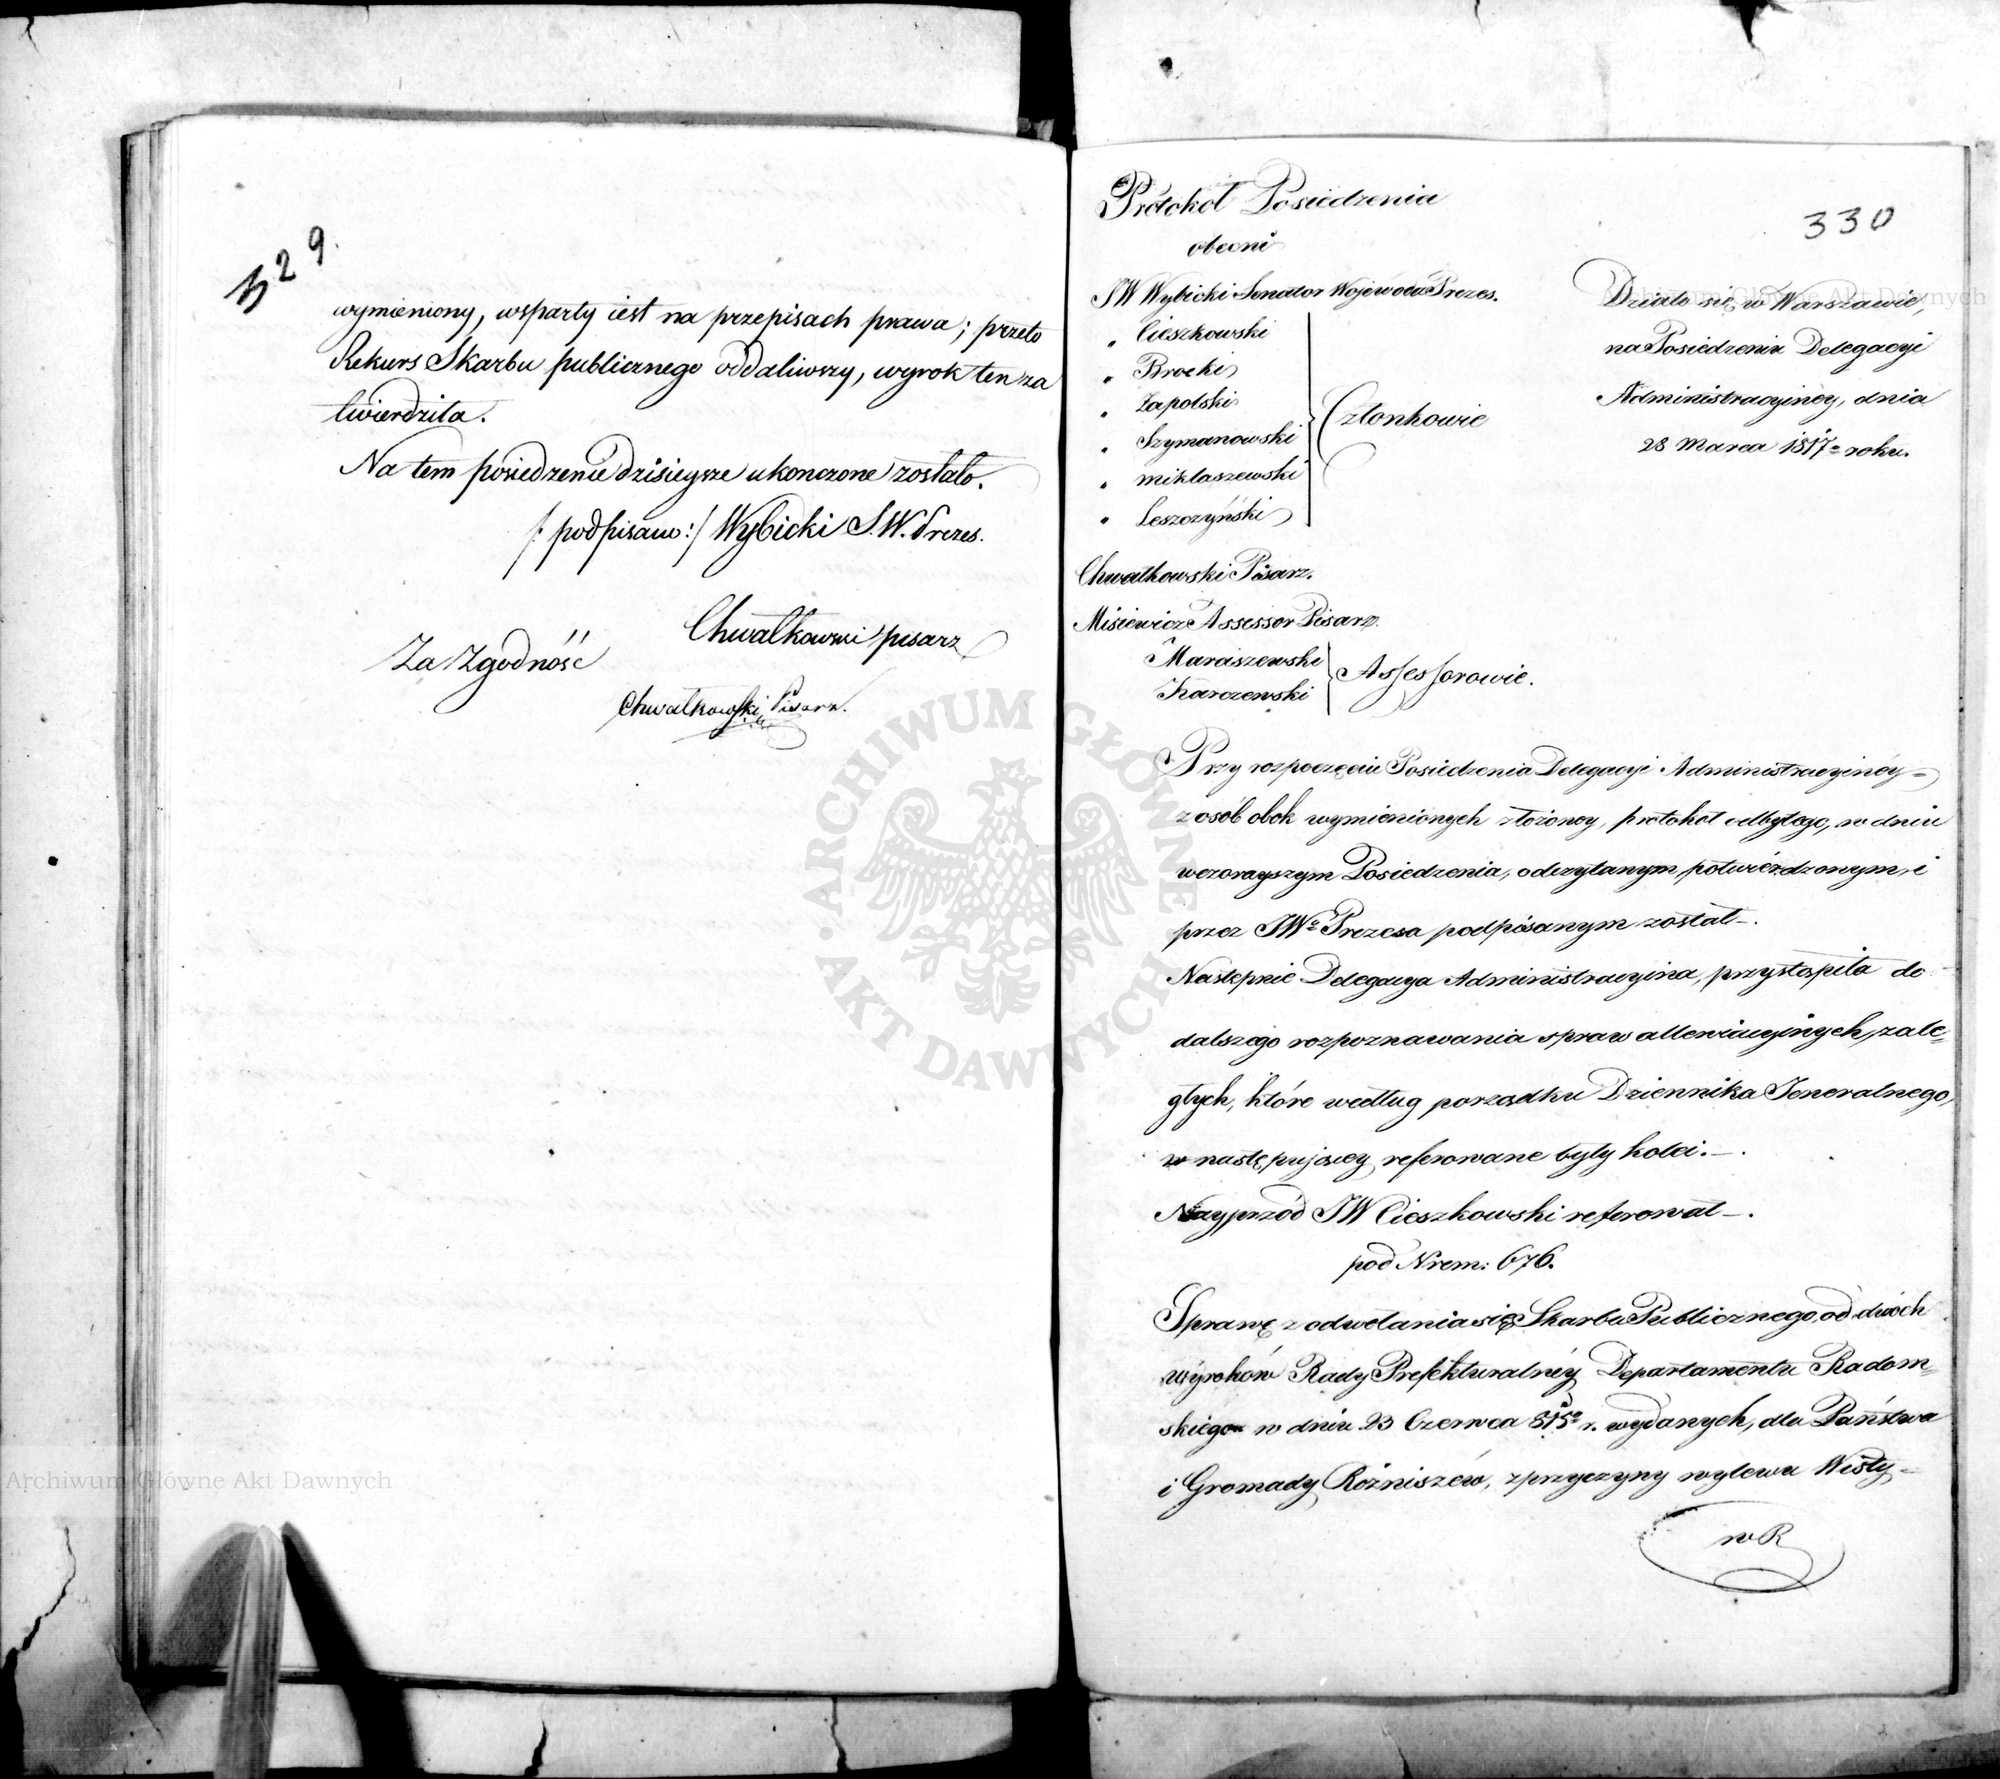 329.
wymieniony, wsparty iest na przepisach prawa; przeto
Rekurs Skarbu publicznego oddaliwszy, wyrok ten za
twierdziła.
Na tem posiedzenie dzisieysze ukonczone zostało.
/: podpisano :/ Wybicki S. W. Prezes.
Chwałkowski pisarz
Za Zgodność
Chwałkowski Pisarz.
330
Protokoł Posiedzenia
obecni
JW Wybicki Senator Wojewoda Prezes.
" Cieszkowski
" Brocki
" Zapolski
" Szymanowski
" Miklaszewski
" Leszczyński
Członkowie
Chwałkowski Pisarz.
Misiewicz Assessor Pisarz.
Maraszewski
Karczewski
Assessorowie.
Działo się w Warszawie,
na Posiedzeniu Delegacyi
Administracyinéy, dnia
28 Marca 1817o roku.
Przy rozpoczęciu Posiedzenia Delegacyi Administracyinéy
z osób obok wymienionych złożoney, protokoł odbytego, w dniu
wczorayszym Posiedzenia, odczytanym, potwierdzonym, i
przez JWo Prezesa podpisanym został.
Następnie Delegacya Administracyina, przystąpiła do
dalszego rozpoznawania spraw allewiacyinych, zale=
głych, które według porządku Dziennika Jeneralnego,
w następującey referowane były kolei.
Nayprzód JW Cieszkowski referował.
pod Nrem: 676.
Sprawę z odwołania się Skarbu Publicznego, od dwóch
wyroków Rady Prefekturalnéy Departamentu Radom=
skiego w dniu 23 Czerwca 815o r. wydanych, dla Państwa
i Gromady Rożniszéw, z przyczyny wylewu Wisły
w R
ARCHIWUM GŁÓWNE AKT DAWNYCH
Archiwum Główne Akt Dawnych
Archiwum Główne Akt Dawnych